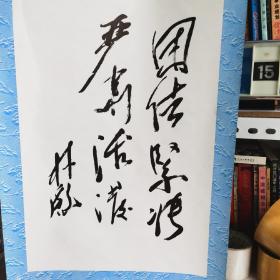 团结紧张
严肃活泼
林彪
15